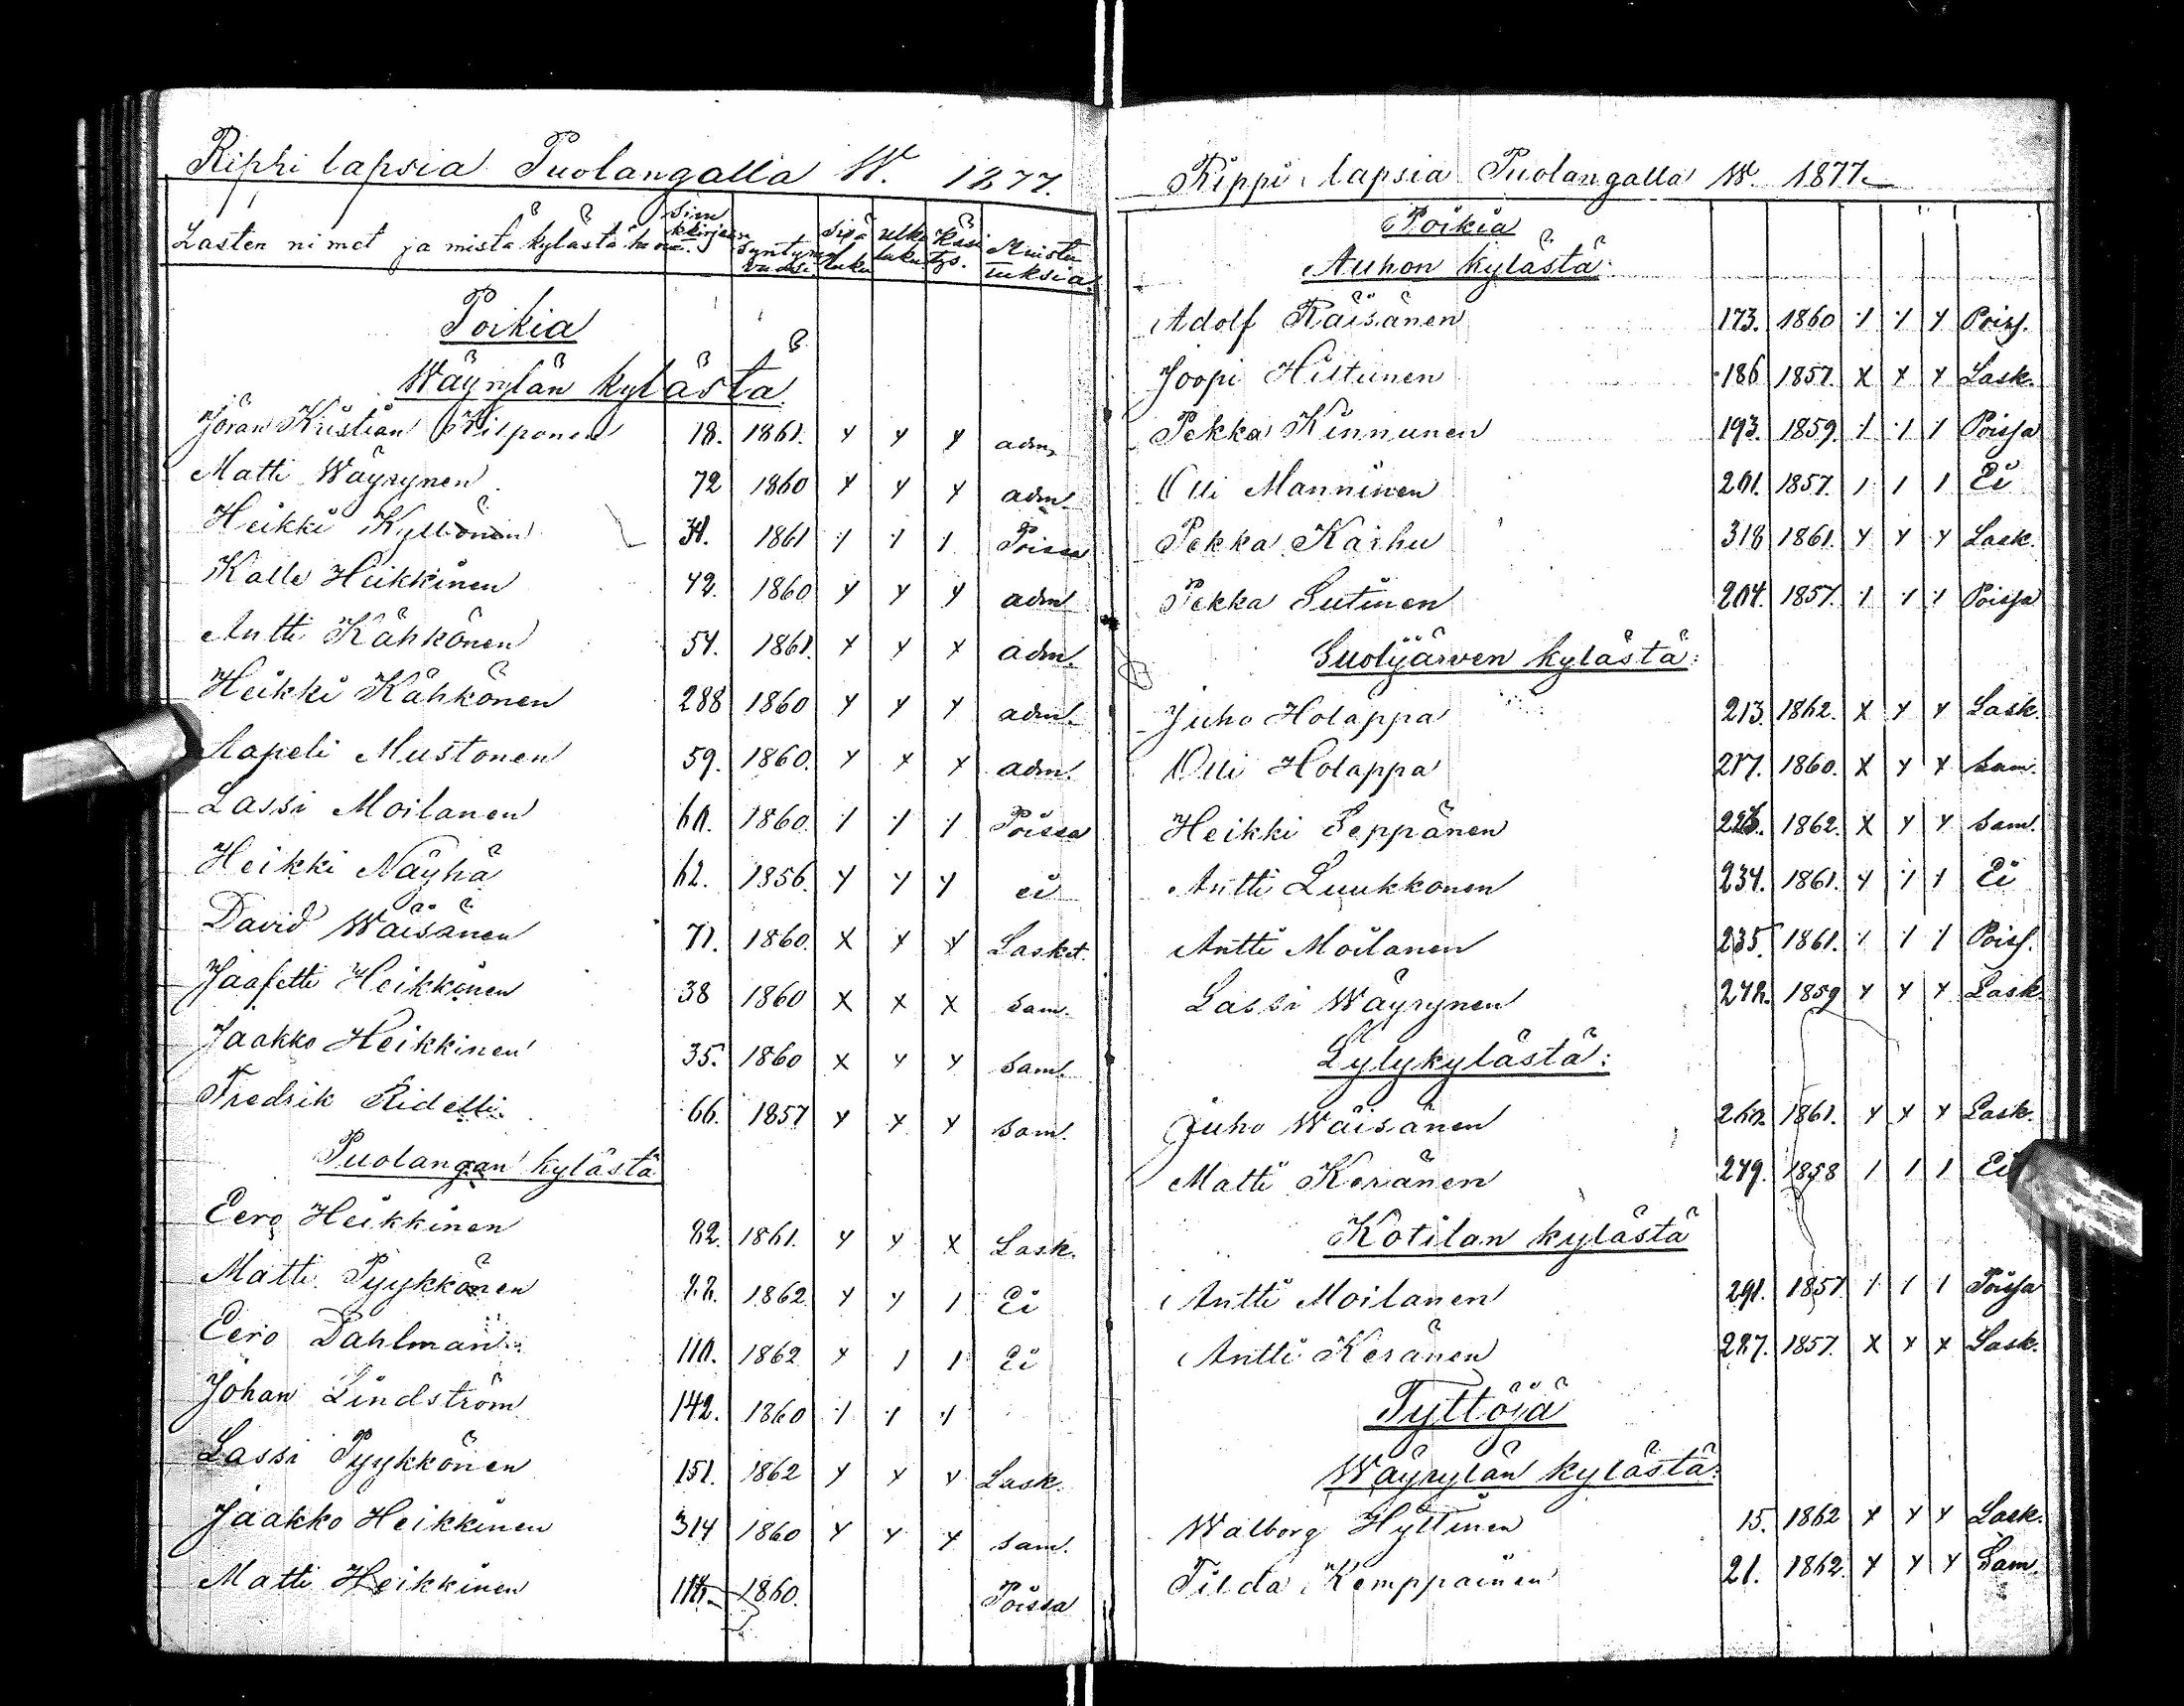 Rippi lapsia Puolangalla W. 1877.
Lasten nimet ja mistä kylästä Sivu kirjan Syntym vuosi Sisä luku Ulko luku Käsi tys. Muistu tuksia.
Poikia
Wäyrylän kylästä
Jöran Kristian Kilponen 18. 1861. x x x adm.
Matti Wäyrynen 72 1860 x x x adm.
Heikki Kyllönen 31. 1861 ·/ ·/ / Poissa
Kalle Heikkinen 42. 1860 x x x adm
Antti Kähkönen 54. 1861. x x x adm.
Heikki Kähkönen 288 1860 x x x adm.
Aapeli Mustonen 59. 1860. x x x adm.
Lassi Moilanen 60. 1860. ·/ ·/ ·/ Poissa
Heikki Näyhä 62. 1856. x x x ei
David Wäisänen 71. 1860. x x x Laskt.
Jaafetti Heikkinen 38 1860 x x x sam.
Jaakko Heikkinen 35. 1860 x x x sam.
Fredrik Ridelli 66. 1857 x x x sam.
Puolangan kylästä
Eero Heikkinen 82. 1861. x x x Lask.
Matti Pyykkönen 1862 x x / Ei
Eero Dahlman 110. 1862 x / / Ei
Johan Lindström 142. 1860 ·/ ·/ ·/
Lassi Pyykkönen 151. 1862 x x x Lask.
Jaakko Heikkinen 314 1860 x x x sam.
Matti Heikkinen 1860. Poissa
Rippi lapsia Puolangalla W. 1877.
Poikia
Auhon kylästä:
Adolf Räisänen 173. 1860 ·/ ·/ x Poiss.
Joopi Hiltunen 186 1857. x x x Lask.
Pekka Kinnunen 193. 1859. ·/ ·/ / Poissa
Olli Manninen 201. 1857. / / / Ei
Pekka Karhu 318 1861. x x x Lask.
Pekka Sutinen 204. 1857. ·/ ·/ ·/ Poissa
Suolijärven kylästä:
Juho Holappa 213. 1862. x x x Lask.
Olli Holappa 217. 1860. x x x sam.
Heikki Seppänen 1862. x x x sam.
Antti Luukkonen 234. 1861. x ·/ / Ei
Antti Moilanen 235. 1861. ·/ / / Poiss.
Lassi Wäyrynen 1859 x x x Lask.
Lylykylästä:
Juho Wäisänen 260. 1861. x x x Lask.
Matti Keränen 279. 1858 / / / Ei
Kotilan kylästä
Antti Moilanen 291. 1857. / / / Poissa
Antti Keränen 287. 1857. x x x Lask.
Tyttöjä
Wäyrylän kylästä:
Walborg Hyttinen 15. 1862 x x x Lask.
Tilda Kemppainen 21. 1862. x x x Sam.